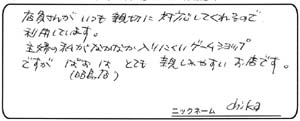 店員さんが いつも 親切に 対応してくれるので
利用しています。
主婦の私がなかなか入りにくいゲームショップ
ですが ぱおぱお とても 親しみやすい お店です。
ニックネーム chika